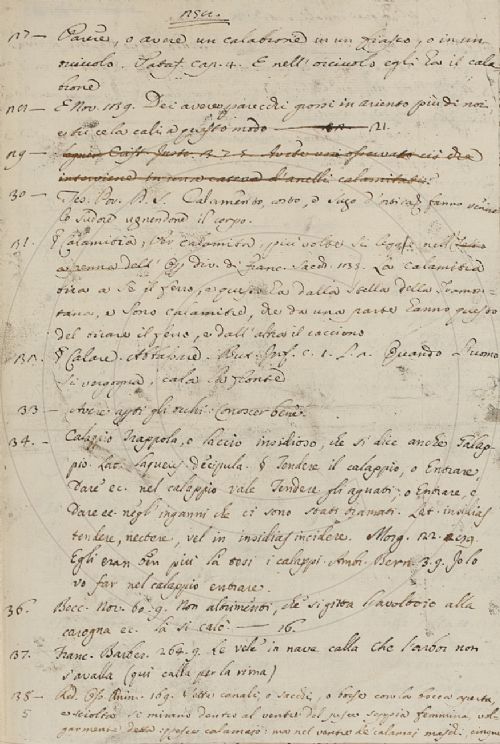 127 — Parere, o avere un calabrone in un fiasco, o in un
orciuolo. Pataf. Cap. 4. E nell'orciuolo egli ha il cala
brone
128 — E Nov. 1159. Dei avere parecchi grossi in ariento più di noi
e chi ce la calì a questo modo 121.
129 —
intervienne in una d'anelli calamitati
30 — Tes. Pov. P. S. Calamento, orbo, e sugo d'ortica fanno venire
lo sudore ugnendone il corpo.
131. § Calamitia, Per calamita, più volte si legge nell'
a penna dell' Op. div. di Franc. Sacch. 133. La calamitia
tira a se il ferro, e questo ha dalla stella della Tramon-
tana, e sono calamite, che da una parte hanno questo
del tirare il ferro, e dall'altra il cacciono
132. § Calare. Abbassare. But. Inf. c. 1. Quando l'uomo
si vergogna, cala la fronte
33 — Avere aperti gli occhi. Conoscer bene.
34. — Calappio Trappola, o laccio insidioso, che si dice anche Galap-
pio. Lat. laqueus, decipula. § Tendere il calappio, o Entrare,
Dare ec. nel calappio vale Tendere gli aguati, o Entrare, e
Dare ec. negli inganni che ci sono stati tramati. Lat. insidias
tendere, nectere, vel in insidias incidere. Morg. 22.
Egli eran ben più là tesi i calappi. Ambr. Bern. 3. 9. Io lo
vo far nel calappio entrare.
36. Bocc. Nov. 60. 9. Non altrimenti, che si gitta l'avoltoio alla
carogna ec. là si calò — 16.
37. Franc. Barber. 264. 9. Le vele in nave calla Che l'arbor non
s'avalla (qui calla per la rima)
138 — Red. Oss. Anim. 169. Sette canali, o sacchi, o borse con la bocca aperta,
5 e sciolta si mirano dentro al ventre del pesce seppia femmina, vol
garmente detto pesce calamaio: ma nel ventre de calamai maschi, cinque